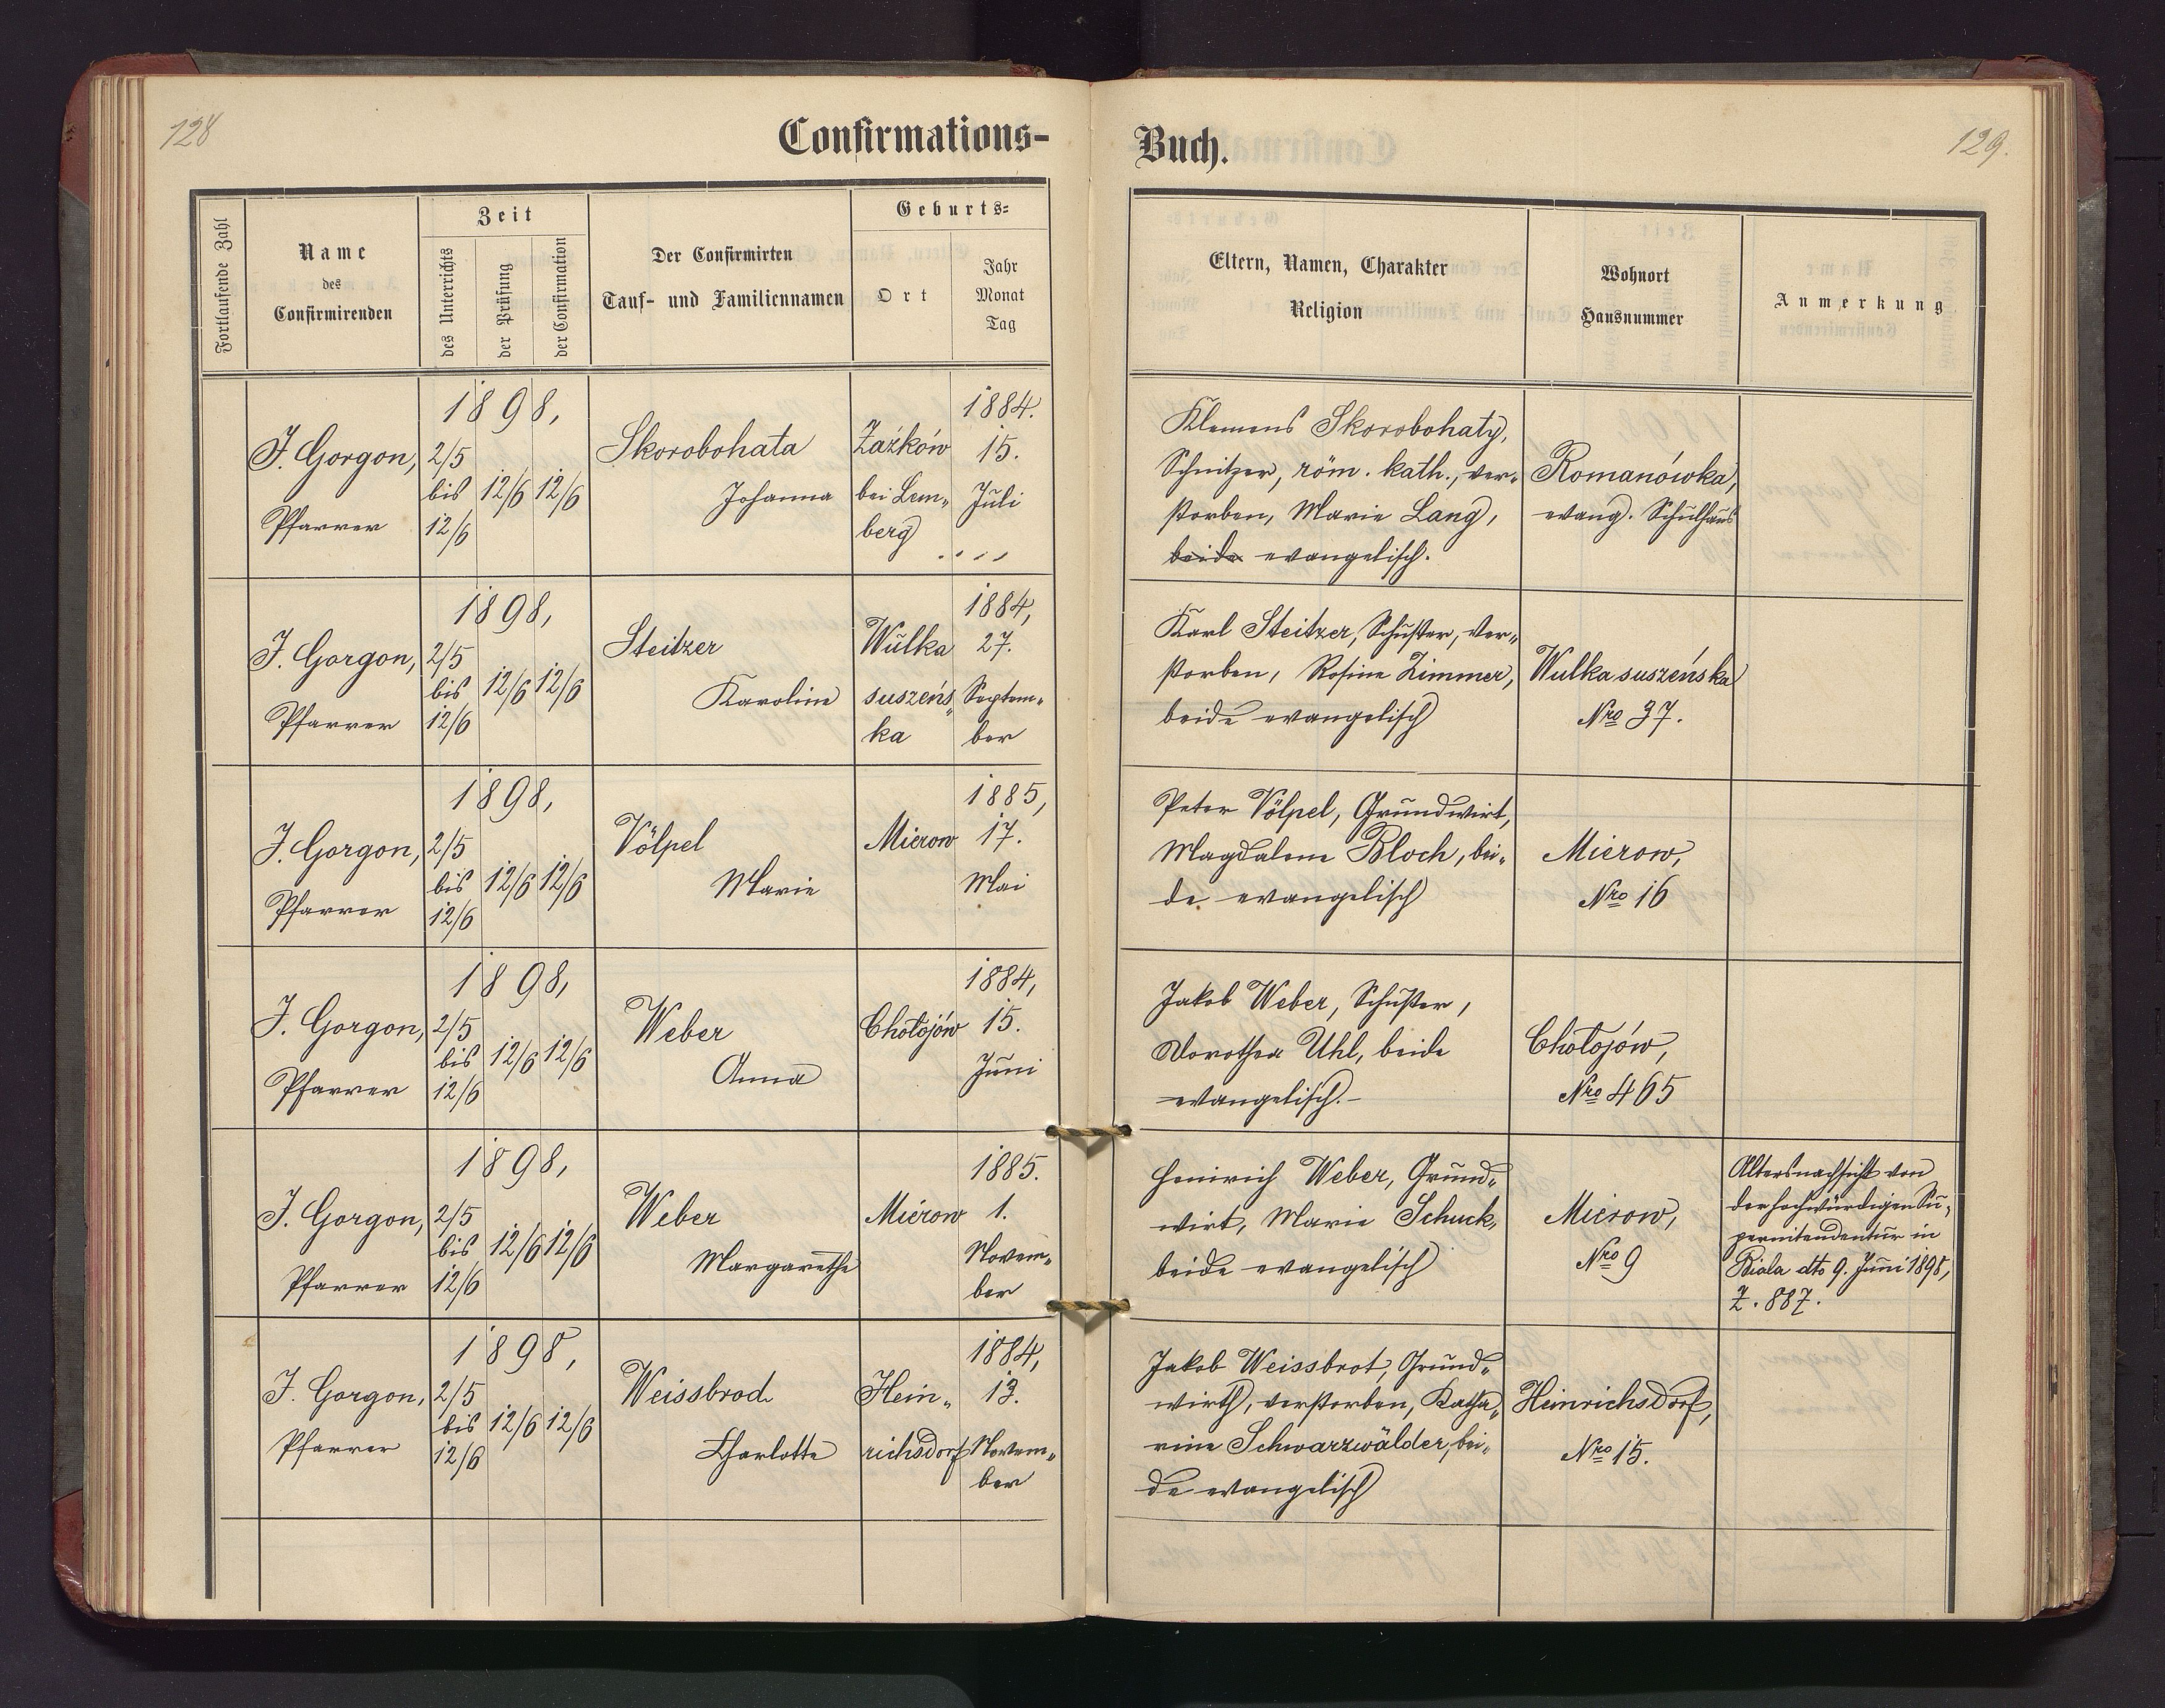 128
Confirmations-
Fortlaufende Zahl
Name
des
Confirmirenden
Zeit
des Unterrichts
der Prüfung
der Confirmation
Der Confirmirten
Tauf- und Familiennamen
Geburts-
Ort
Jahr
Monat
Tag
1898,
J. Gorgon,
Pfarrer
2/5
bis
12/6
12/6 12/6
Skorobohata
Johanna
Zażków
bei Lem„
berg
1884.
15.
Juli
1898,
J. Gorgon,
Pfarrer
2/5
bis
12/6
12/6 12/6
Steitzer
Karoline
Wulka
suszeńs„
ka
1884,
27.
Septem„
ber
1898,
J. Gorgon,
Pfarrer
2/5
bis
12/6
12/6 12/6
Völpel
Marie
Mierow
1885,
17.
Mai
1898,
J. Gorgon,
Pfarrer
2/5
bis
12/6
12/6 12/6
Weber
Anna
Chołojów
1884,
15.
Juni
1898,
J. Gorgon,
Pfarrer
2/5
bis
12/6
12/6 12/6
Weber
Margarethe
Mierow
1885.
1.
Novem„
ber
1898,
J. Gorgon,
Pfarrer
2/5
bis
12/6
12/6 12/6
Weissbrod
Charlotte
Hein„
richsdorf
1884,
13.
Novem„
ber
Buch.
129.
Eltern, Namen, Charakter
Religion
Wohnort
Hausnummer
Anmerkung
Klemens Skorobohaty,
Schnitzer, röm. kath., ver„
storben, Marie Lang,
beide evangelisch.
Romanówka,
evang. Schulhaus
Karl Steitzer, Schuster, ver„
storben, Rosine Zimmer,
beide evangelisch
Wulka suszeńska
Nro 37.
Peter Völpel, Grundwirt,
Magdalena Bloch, bei„
de evangelisch
Mierow,
Nro 16
Jakob Weber, Schuster,
Dorothea Uhl, beide
evangelisch.–
Chołojów,
Nro 465
Heinrich Weber, Grund„
wirt, Marie Schuck,
beide evangelisch
Mierow,
Nro 9
Altersnachsicht von
der hochwürdigen Su„
perintendentur in
Biala dto 9. Juni 1898,
Z. 887.
Jakob Weissbrot, Grund„
wirth, verstorben, Katha„
rine Schwarzwälder, bei„
de evangelisch
Heinrichsdorf,
Nro 15.